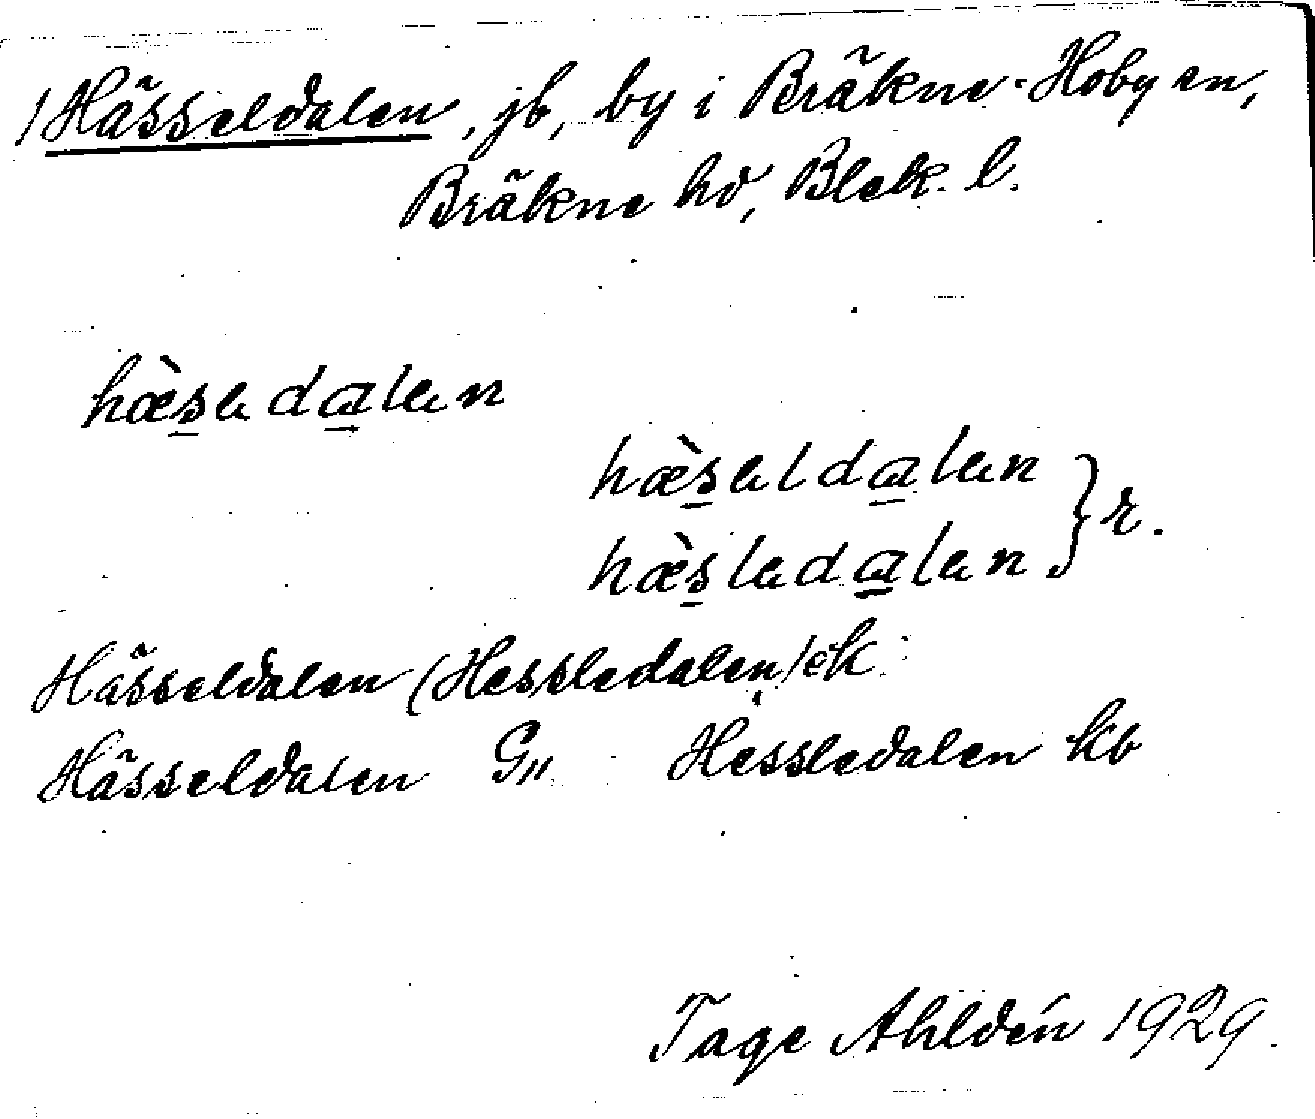 1 Hässeldalen, jb, by i Bräkne-Hoby sn,
Bräkne hd, Blek. l.
hæ̀s̲ɐdɑ̲lɐn
hæ̀s̲ɐldɑ̲lɐn
hæ̀s̲lɐdɑ̲lɐn } r.
Hässeldalen (Hessledalen) ek
Hässeldalen G" Hessledalen kb
Tage Ahldén 1929.